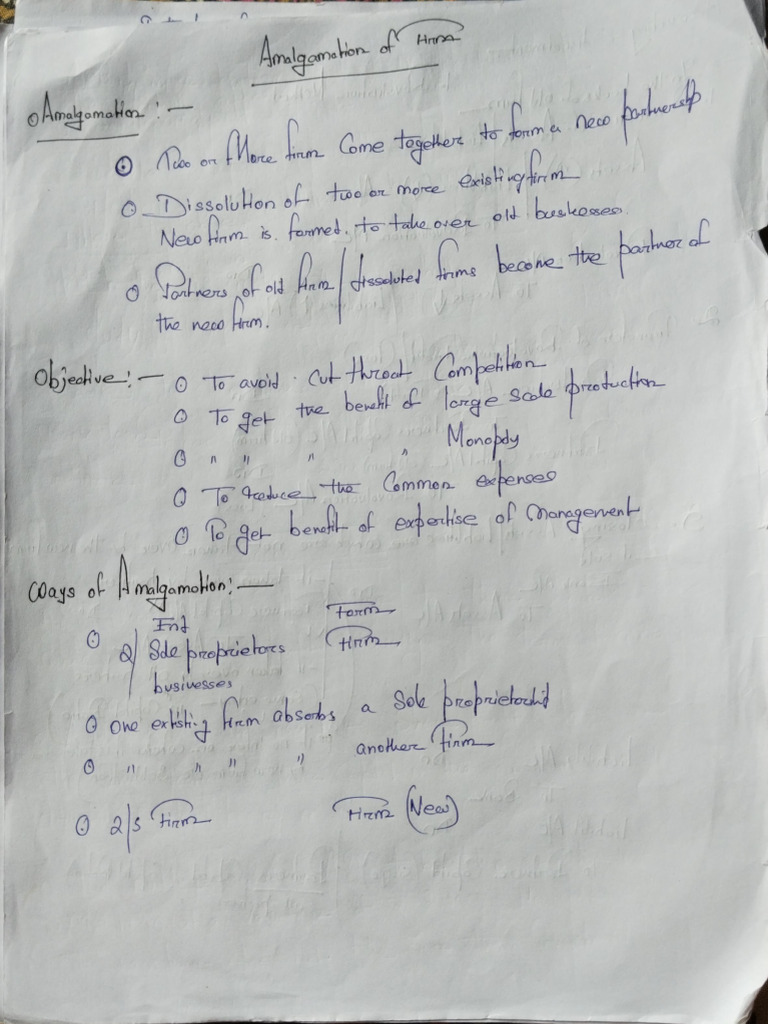 Amalgamation of Firm
Amalgamation :-
Two or More firm Come together to form a new partnership
Dissolution of two or more existing firm
New firm is formed. to take over old buskesses.
Partners of old firm / dissoluted firms become the partner of
the new firm.
Objective :- To avoid cut throat Competition
To get the benefit of large scale production
" " " " Monopoly
To reduce the Common expenses
To get benefit of expertise of management
Ways of Amalgamation :-
Form
2/ Sole proprietors Firm
businesses
One existing firm absorbs a Sole proprietorship
" " " " another firm
2/3 Firm Firm (New)